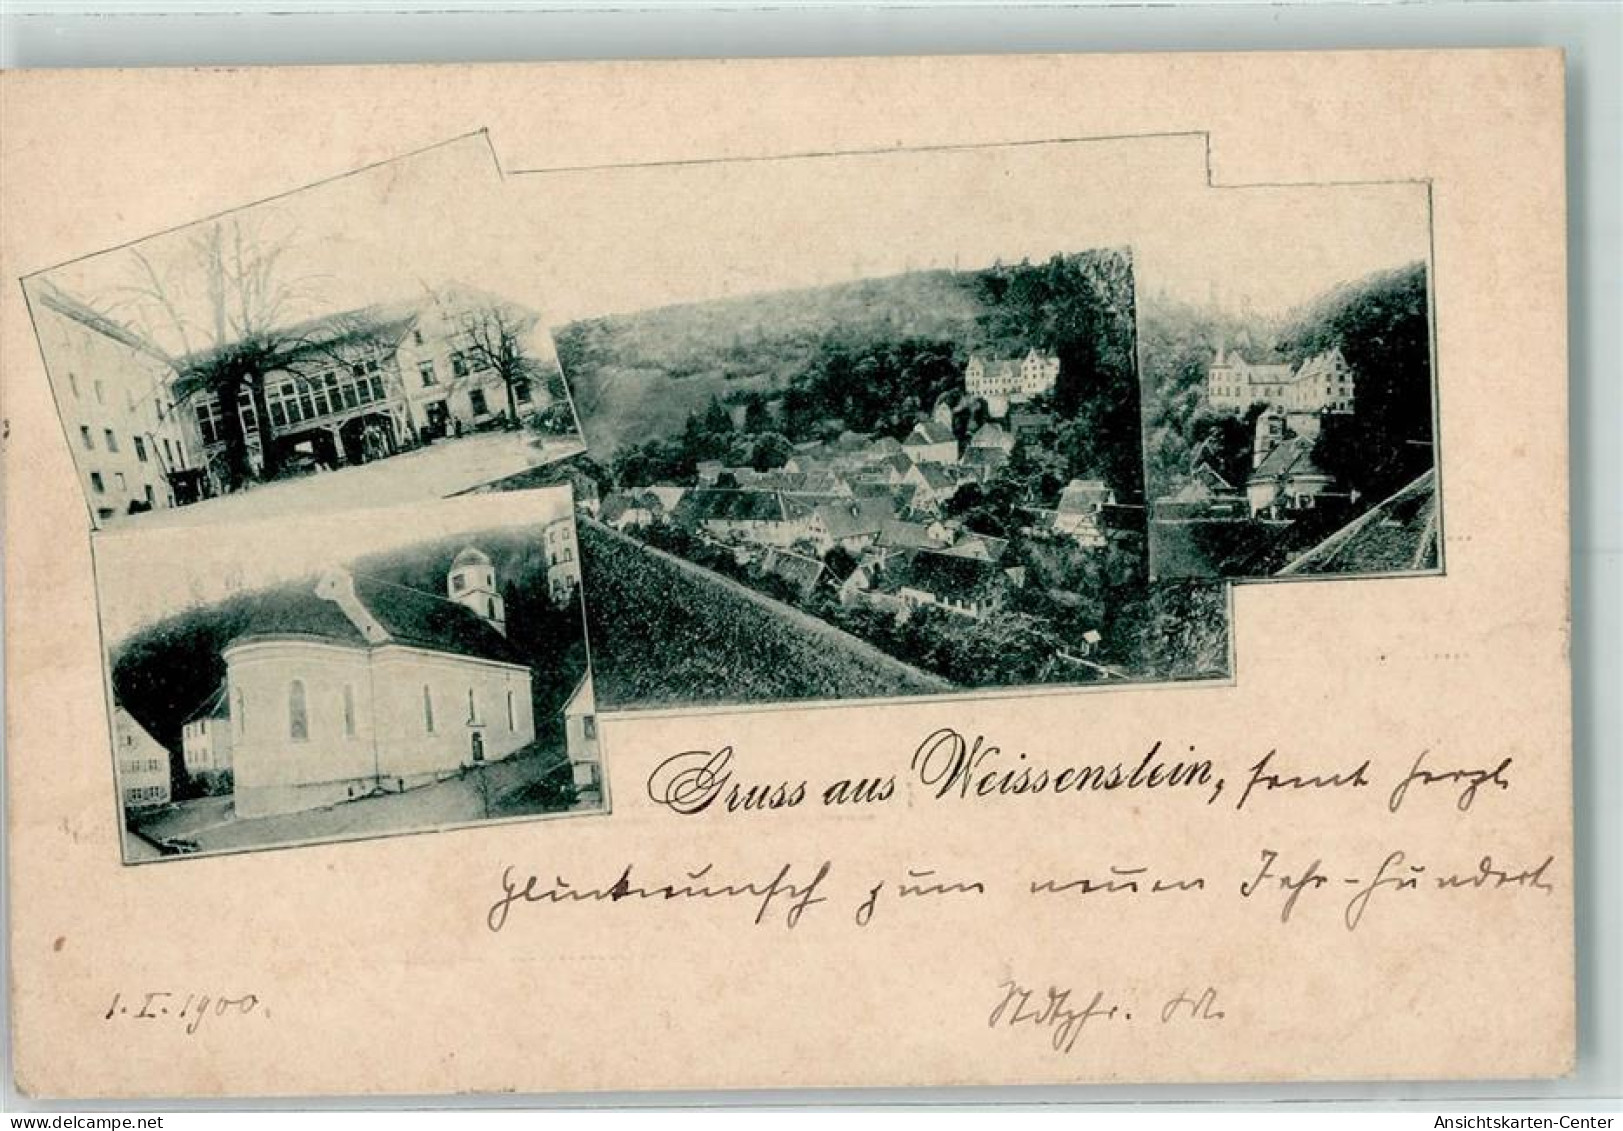 Gruss aus Weissenstein, samt herzl.
Glückwunsch zum neuen Jahr-hundert.
1. I. 1900.
Stdtpfr. M.
AnsichtsKarten-Center